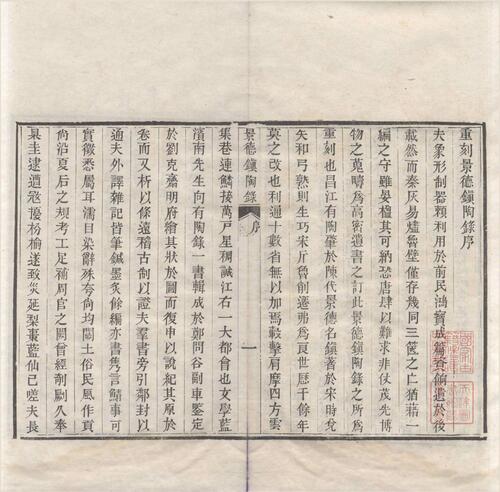 重刻景德鎮陶錄序
夫象形制器賴利用於前民鴻寶成篇資館遺於後
載然而秦灰易燼魯壁僅存幾同三篋之亡猶藉一
編之守雖晏楹其可納恐唐肆以難求非仗茂先博
物之蒐疇爲高密遺書之訂此景德鎮陶錄之所爲
重刻也昌江有陶肇於陳代景德名鎮著於宋時兌
矢和弓熟則生巧宋斤魯削遷弗爲良世歷千餘年
莫之改也利通十數省無以加焉轂擊肩摩四方雲
景德鎮陶錄 序 一
集巷連鱗接萬戸星稠誠江右一大都會也文學藍
濱南先生向有陶錄一書輯成於鄭問谷副車鑒定
於劉克齋明府繪其狀於圖而復申以說紀其原於
卷而又析以條遠稽古制以證夫羣書旁引鄰封以
通夫外譯雜記皆筆鍼墨灸餘編亦書雋言鯖事可
實徵悉屬耳濡目染辭殊夸尙均關土俗民風作貢
尙沿夏后之規考工足補周官之闕曾經剞劂久奉
臬圭逮遭寇擾枌榆遂致災延梨棗藍仙已嗟夫長